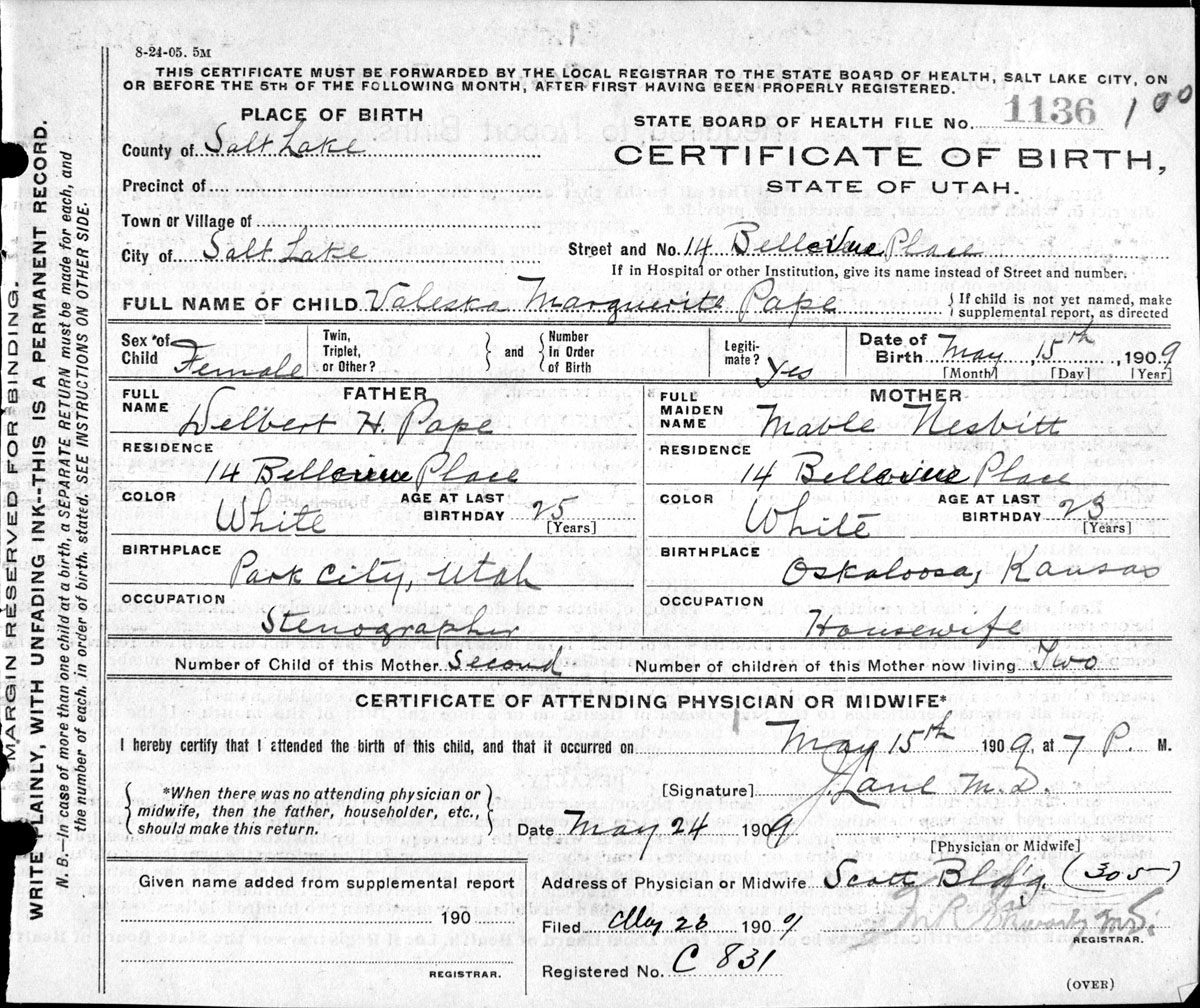 8-24-05. 5M
THIS CERTIFICATE MUST BE FORWARDED BY THE LOCAL REGISTRAR TO THE STATE BOARD OF HEALTH, SALT LAKE CITY, ON
OR BEFORE THE 5TH OF THE FOLLOWING MONTH, AFTER FIRST HAVING BEEN PROPERLY REGISTERED.
PLACE OF BIRTH
STATE BOARD OF HEALTH FILE No. 1136 100
County of Salt Lake
CERTIFICATE OF BIRTH,
STATE OF UTAH.
Precinct of
Town or Village of
City of Salt Lake
Street and No. 14 Bellevue Place
If in Hospital or other Institution, give its name instead of Street and number.
FULL NAME OF CHILD Valeska Marguerite Pape
If child is not yet named, make
supplemental report, as directed
Sex of
Child Female
Twin,
Triplet,
or Other?
and
Number
in Order
of Birth
Legiti-
mate? Yes
Date of
Birth May 15th, 1909
[Month] [Day] [Year]
FATHER
FULL
NAME Delbert H. Pape
RESIDENCE
14 Bellevue Place
COLOR
White
AGE AT LAST
BIRTHDAY 25
[Years]
BIRTHPLACE
Park City, Utah
OCCUPATION
Stenographer
MOTHER
FULL
MAIDEN
NAME Mable Nesbitt
RESIDENCE
14 Bellevue Place
COLOR
White
AGE AT LAST
BIRTHDAY 23
[Years]
BIRTHPLACE
Oskaloosa, Kansas
OCCUPATION
Housewife
Number of Child of this Mother Second
Number of children of this Mother now living Two
CERTIFICATE OF ATTENDING PHYSICIAN OR MIDWIFE*
I hereby certify that I attended the birth of this child, and that it occurred on May 15th 1909, at 7 P. M.
*When there was no attending physician or
midwife, then the father, householder, etc.,
should make this return.
[Signature] J. Lane M.D.
Date May 24 1909
[Physician or Midwife]
Given name added from supplemental report
190
REGISTRAR.
Address of Physician or Midwife Scott Bldg. (305)
Filed May 28 1909
M.D.
REGISTRAR.
Registered No. C 831
(OVER)
MARGIN RESERVED FOR BINDING.
WRITE PLAINLY, WITH UNFADING INK--THIS IS A PERMANENT RECORD.
N. B.—In case of more than one child at a birth, a SEPARATE RETURN must be made for each, and
the number of each, in order of birth, stated. SEE INSTRUCTIONS ON OTHER SIDE.